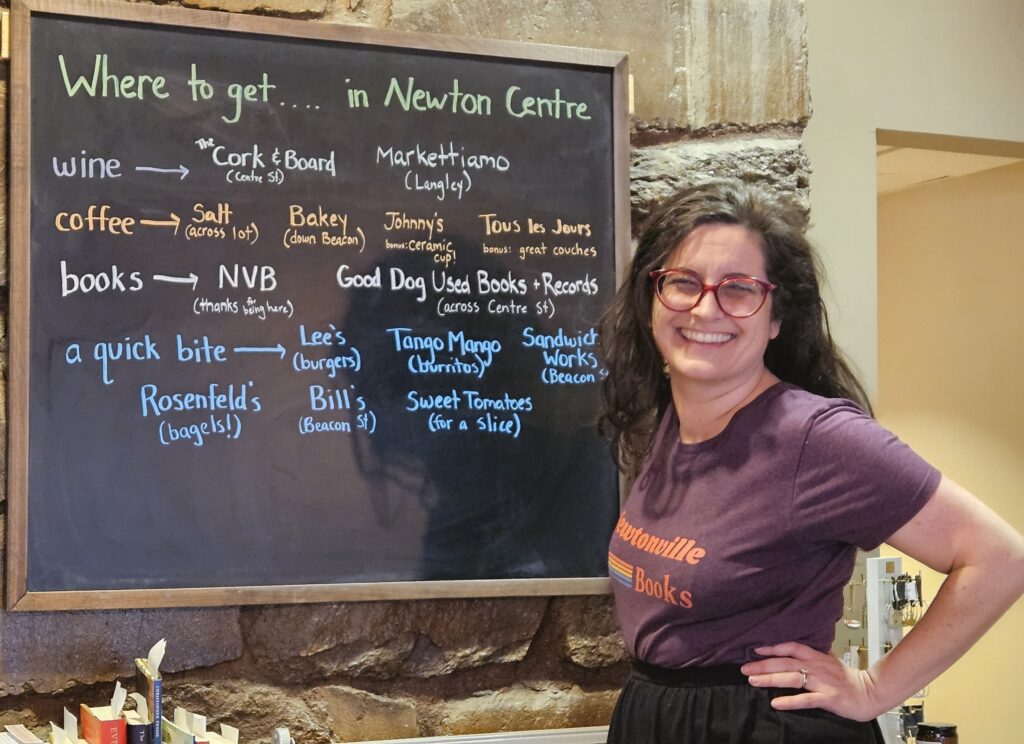 Where to get.... in Newton Centre
wine → The Cork & Board Markettiamo
(Centre St) (Langley)
coffee → Salt Bakey Johnny's Tous les Jours
(across lot) (down Beacon) bonus: ceramic cup! bonus: great couches
books → NVB Good Dog Used Books + Records
(thanks for being here) (across Centre St)
a quick bite → Lee's Tango Mango Sandwich Works
(burgers) (burritos) (Beacon S
Rosenfeld's Bill's Sweet Tomatoes
(bagels!) (Beacon St) (for a slice)
ewtonville
Books